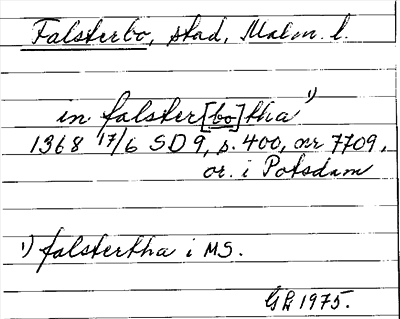 Falsterbo, stad, Malm. l.
in falster[bo]tha 1)
1368 17/6 SD 9, s. 400, nr 7709,
or. i Potsdam
1) falstertha i MS.
GL 1975.